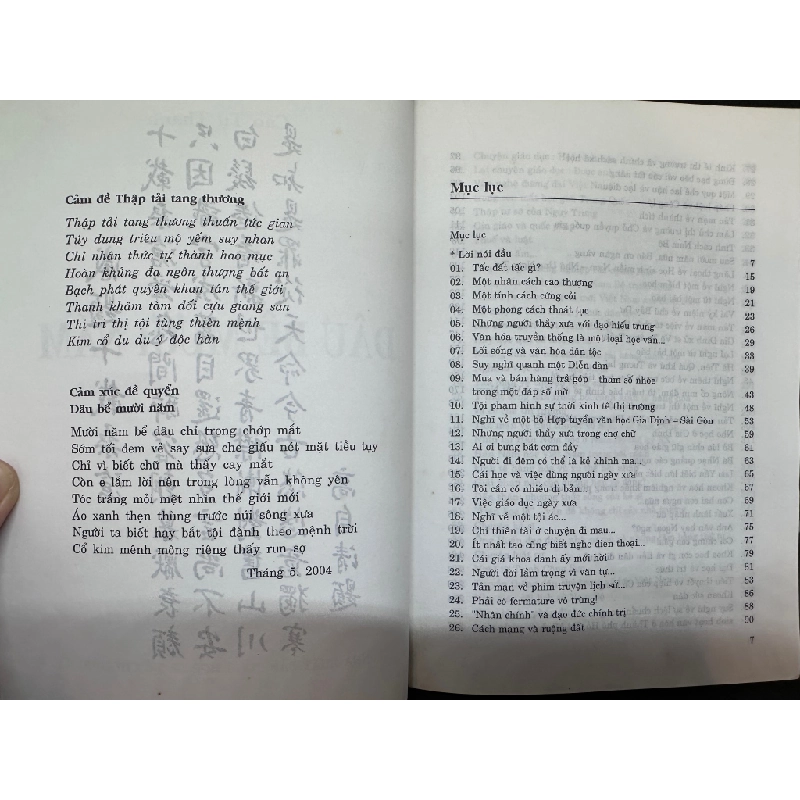 Cảm đề Thập tải tang thương
Thập tải tang thương thuấn tức gian
Túy dung triêu mộ yểm suy nhan
Chỉ nhân thức tự thành hao mục
Hoàn khủng đa ngôn thượng bất an
Bạch phát quyện khan tân thế giới
Thanh khâm tàm đối cựu giang san
Thi tri thị tội tùng thiên mệnh
Kim cổ du du ý độc hàn
Cảm xúc đề quyển
Dâu bể mười năm
Mười năm bể dâu chỉ trong chớp mắt
Sớm tối đem vẻ say sưa che giấu nét mặt tiều tụy
Chỉ vì biết chữ mà thấy cay mắt
Còn e lắm lời nên trong lòng vẫn không yên
Tóc trắng mỏi mệt nhìn thế giới mới
Áo xanh thẹn thùng trước núi sông xưa
Người ta biết hay bắt tội đành theo mệnh trời
Cổ kim mênh mông riêng thấy run sợ
Tháng 5. 2004
Mục lục
Mục lục
* Lời nói đầu 7
01. Tấc đất tấc gì? 15
02. Một nhân cách cao thượng 19
03. Một tính cách cứng cỏi 21
04. Một phong cách thoát tục 23
05. Những người thầy xưa với đạo hiếu trung 26
06. Văn hóa truyền thống là một loại học vấn... 29
07. Lối sống và văn hóa dân tộc 33
08. Suy nghĩ quanh một Diễn đàn 39
09. Mua và bán hàng trả góp - tham số nhỏ
trong một đáp số mờ 43
10. Tội phạm hình sự thời kinh tế thị trường 48
11. Nghĩ về một bộ Hợp tuyển văn học Gia Định - Sài Gòn 53
12. Những người thầy xưa trong chợ chữ 57
13. Ai ơi bưng bát cơm đầy 61
14. Người đi đêm có thể là kẻ khinh ma... 63
15. Cái học và việc dùng người ngày xưa 65
16. Tôi cần có nhiều dị bản... 67
17. Việc giáo dục ngày xưa 69
18. Nghĩ về một tội ác... 71
19. Chỉ thiên tài ở chuyện đi mau... 75
20. Ít nhất tao cũng biết nghe điện thoại... 77
21. Cái giá khoa danh ấy mới hời 79
22. Người đời lầm trọng vì văn tự... 81
23. Tản mạn về phim truyện lịch sử... 83
24. Phải có fermature vô trùng! 86
25. "Nhân chính" và đạo đức chính trị 88
26. Cách mạng và ruộng đất 90
7